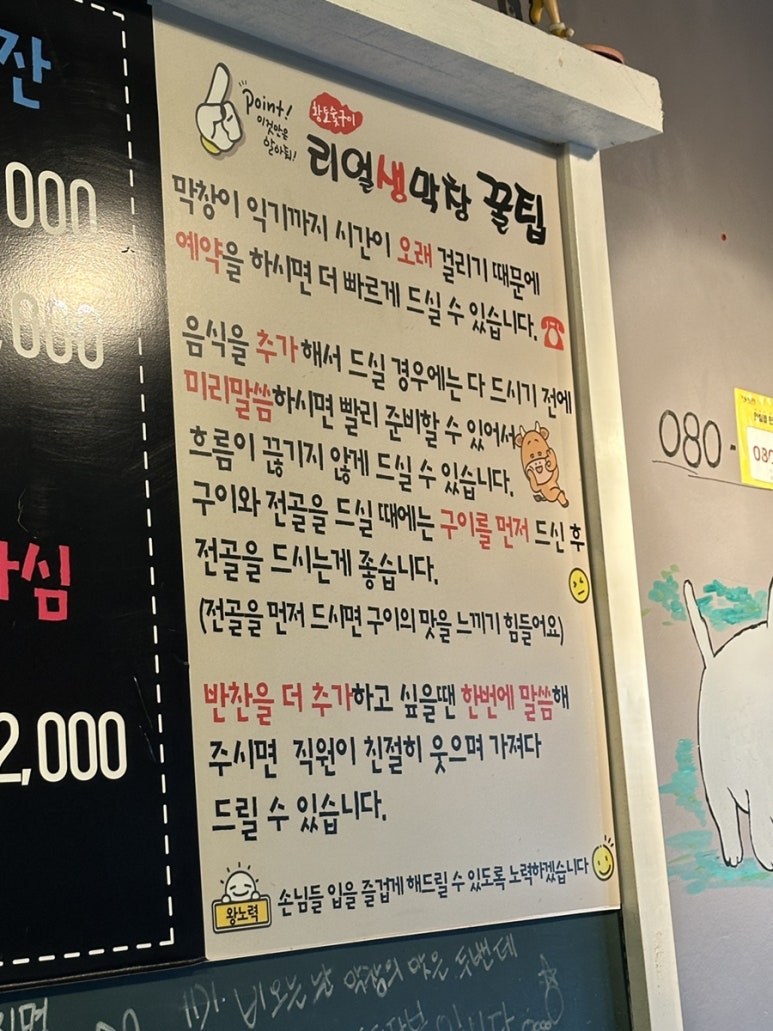 잔
000
,000
심
2,000
Point!
이것만은
알아둬!
황토숯구이
리얼생막창 꿀팁
막창이 익기까지 시간이 오래 걸리기 때문에
예약을 하시면 더 빠르게 드실 수 있습니다.
음식을 추가해서 드실 경우에는 다 드시기 전에
미리말씀하시면 빨리 준비할 수 있어서
흐름이 끊기지 않게 드실 수 있습니다.
구이와 전골을 드실 때에는 구이를 먼저 드신 후
전골을 드시는게 좋습니다.
(전골을 먼저 드시면 구이의 맛을 느끼기 힘들어요)
반찬을 더 추가하고 싶을땐 한번에 말씀해
주시면 직원이 친절히 웃으며 가져다
드릴 수 있습니다.
왕노력
손님들 입을 즐겁게 해드릴 수 있도록 노력하겠습니다
080-
080